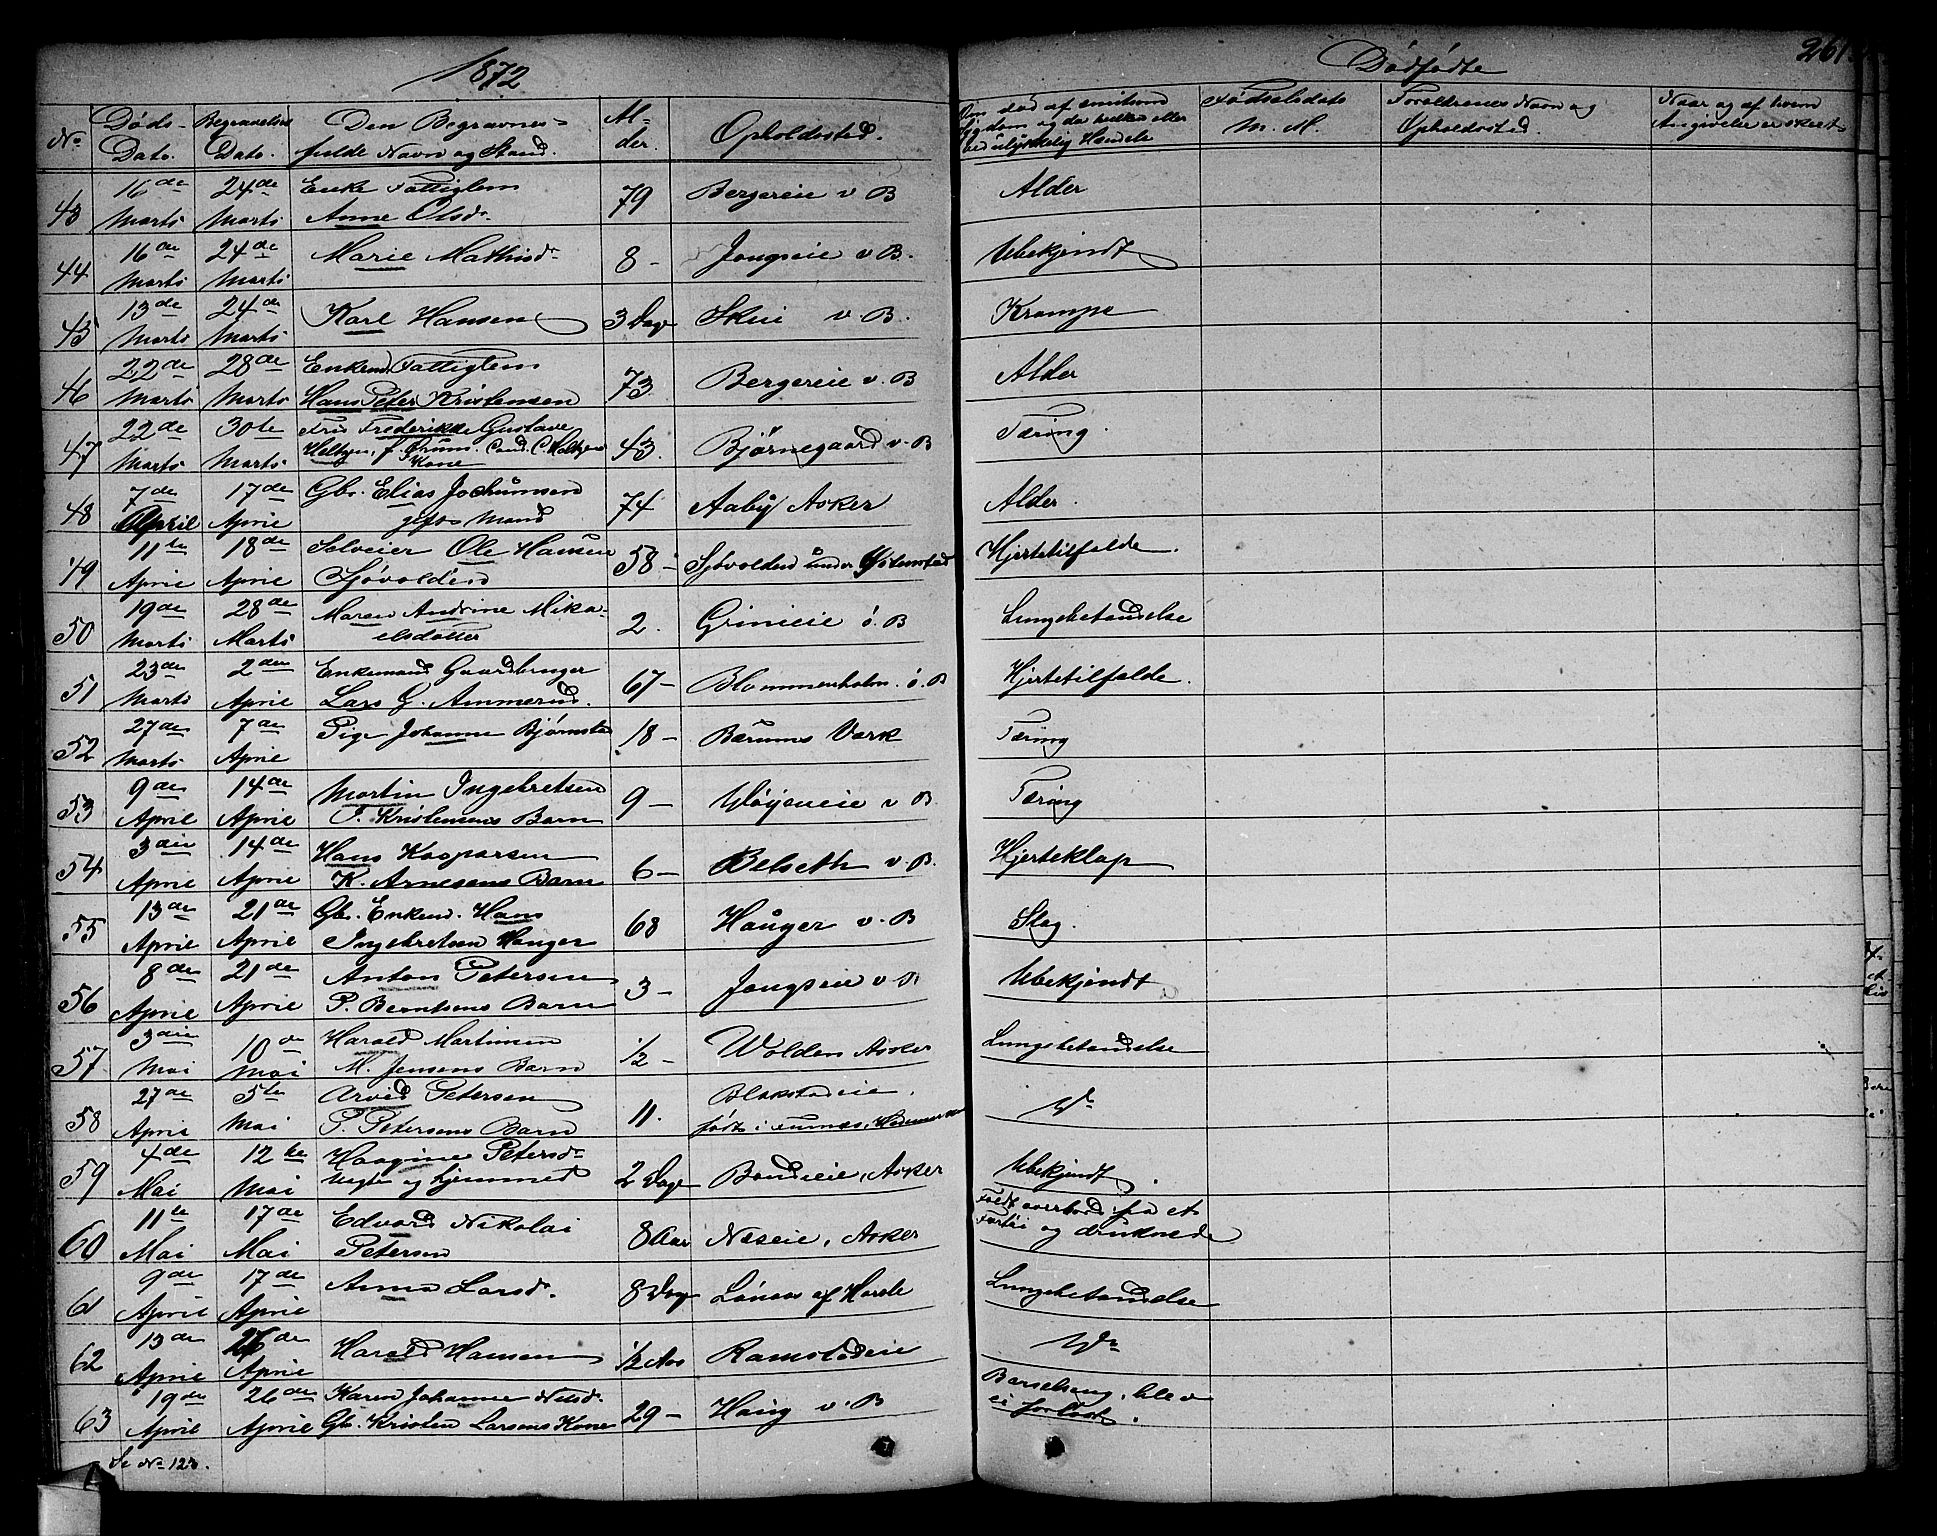 1872
Dødfødte
261
No
Døds-Dato.
Begravelses Dato.
Den Begravnes fulde Navn og Stand.
Alder.
Opholdssted.
Om død af smitsom Sygdom og da hvilken eller ved ulykkelig Hændelse
Fødselsdato M. M.
Forældrenes Navn og Opholdssted.
Naar og af hvem Angivelse er skeet
43 16de Marts 24de Marts Enke Fattiglem Anne Olsdr. 79 Bergereie v B Alder
44 16de Marts 24de Marts Marie Mathisdr 8 - Jongseie v B. Ubekjendt
45 13de Marts 24de Marts Karl Hansen 3 Dage Skui v. B. Krampe
46 22de Marts 28de Marts Enkemd. Fattiglem Hans Peter Kristensen 73. Bergereie v. B Alder
47 22de Marts 30te Marts Fru Frederikke Gustave Heltzen, f. Cand. C. Holtzens Kone 43. Bjørnegaard v. B Tæring.
48 7de April 17de April Gbr. Elias Jochumsen gift Mand 74 Aaby Asker Alder.
49 11te April 18de April Selveier Ole Hansen Sjøvolden 58 - Sjøvolden under Østenstad Hjertetilfælde.
50 19de Marts 28de Marts Maren Andrine Mikaelsdatter 2. Grinieie ø. B Lungebetændelse
51 23de Marts 2den April Enkemand Gaardbruger Lars G. Ammerud. 67 - Blommenholm. ø. B Hjertetilfælde.
52 27de Marts 7de April Pige Johanne Bjørnstad 18 - Bærums Værk Tæring
53 9de April 14de April Martin Ingebretsen I. Kristensens Barn 9 - Wøyeneie v B Tæring
54 3die April 14de April Hans Kasparsen K. Arnesens Barn 6 - Belseth v. B. Hjerteklap
55 13de April 21de April Gbr. Enkemd. Hans Ingebretsen Hauger 68 Hauger v. B Slag.
56 8de April 21de April Anton Petersen P. Berntsens Barn 3 - Jongseie v B. Ubekjendt
57 3die Mai 10de Mai Harald Martinsen M. Jensens Barn 1/2 - Wolden Asker Lungebetændelse
58 27de April 5te Mai Arvid Petersen P. Petersens Barn 11. Blakstadeie, født i Hedemarken Do
59 4de Mai 12te Mai Haagine Petersdr. og hjemmed 2 Dage Bondieie, Asker Ubekjendt.
60 11te Mai 17de Mai Edvard Nikolai Petersen 8 Aar Næseie, Asker Faldt overbord fra et Fartøi og druknede
61 9de April 17de April Anna Larsdr. 8 Dage Lønaas af Hvalst. Lungebetændelse
62 13de April 26de April Harald Hansen 1/2 Aar Ramstadeie Do
63 19de April 26de April Karen Johanne Nilsdr. Gbr. Kristen Larsens Kone 29 - Haug v. B Barselseng, blev ei forløst.
Se No 123.